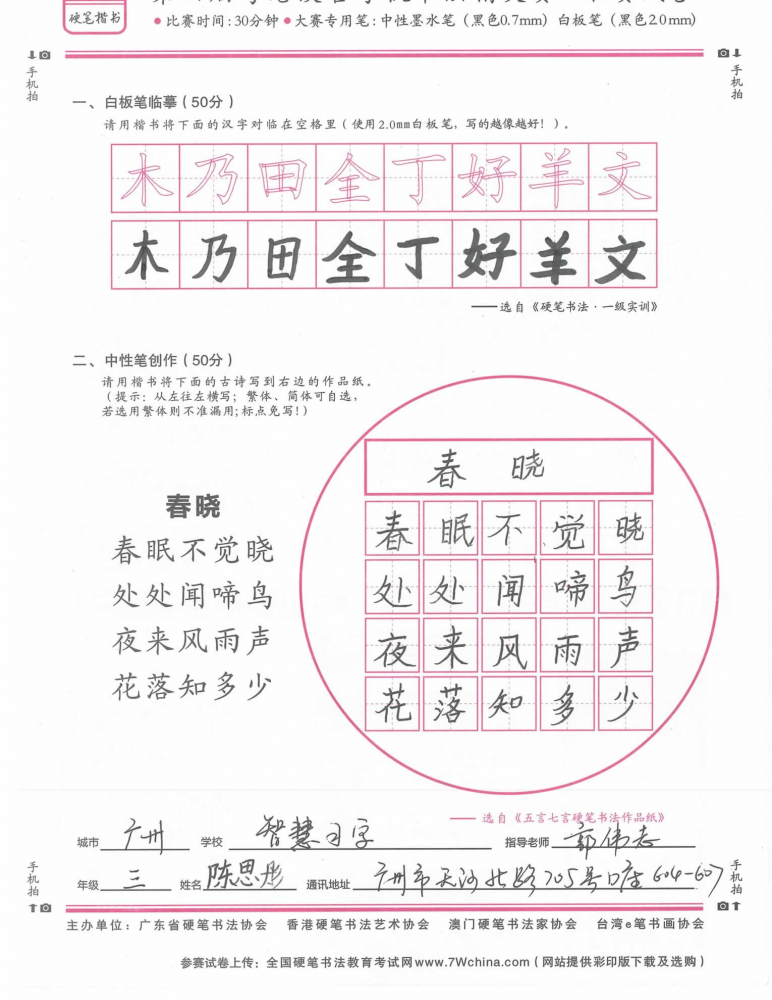 硬笔楷书
● 比赛时间:30分钟 ● 大赛专用笔:中性墨水笔(黑色0.7mm) 白板笔(黑色2.0mm)
手机拍
手机拍
一、白板笔临摹(50分)
请用楷书将下面的汉字对临在空格里(使用2.0mm白板笔,写的越像越好!)。
木乃田全丁好羊文
木乃田全丁好羊文
——选自《硬笔书法·一级实训》
二、中性笔创作(50分)
请用楷书将下面的古诗写到右边的作品纸。
(提示:从左往左横写;繁体、简体可自选,
若选用繁体则不准漏用;标点免写!)
春晓
春眠不觉晓
处处闻啼鸟
夜来风雨声
花落知多少
春晓
春眠不觉晓
处处闻啼鸟
夜来风雨声
花落知多少
——选自《五言七言硬笔书法作品纸》
城市 广州 学校 智慧习字 指导老师 郭伟志
年级 三 姓名 陈思彤 通讯地址 广州市天河北路705号口座604-607
手机拍
手机拍
主办单位:广东省硬笔书法协会 香港硬笔书法艺术协会 澳门硬笔书法家协会 台湾e笔书画协会
参赛试卷上传:全国硬笔书法教育考试网www.7Wchina.com(网站提供彩印版下载及选购)